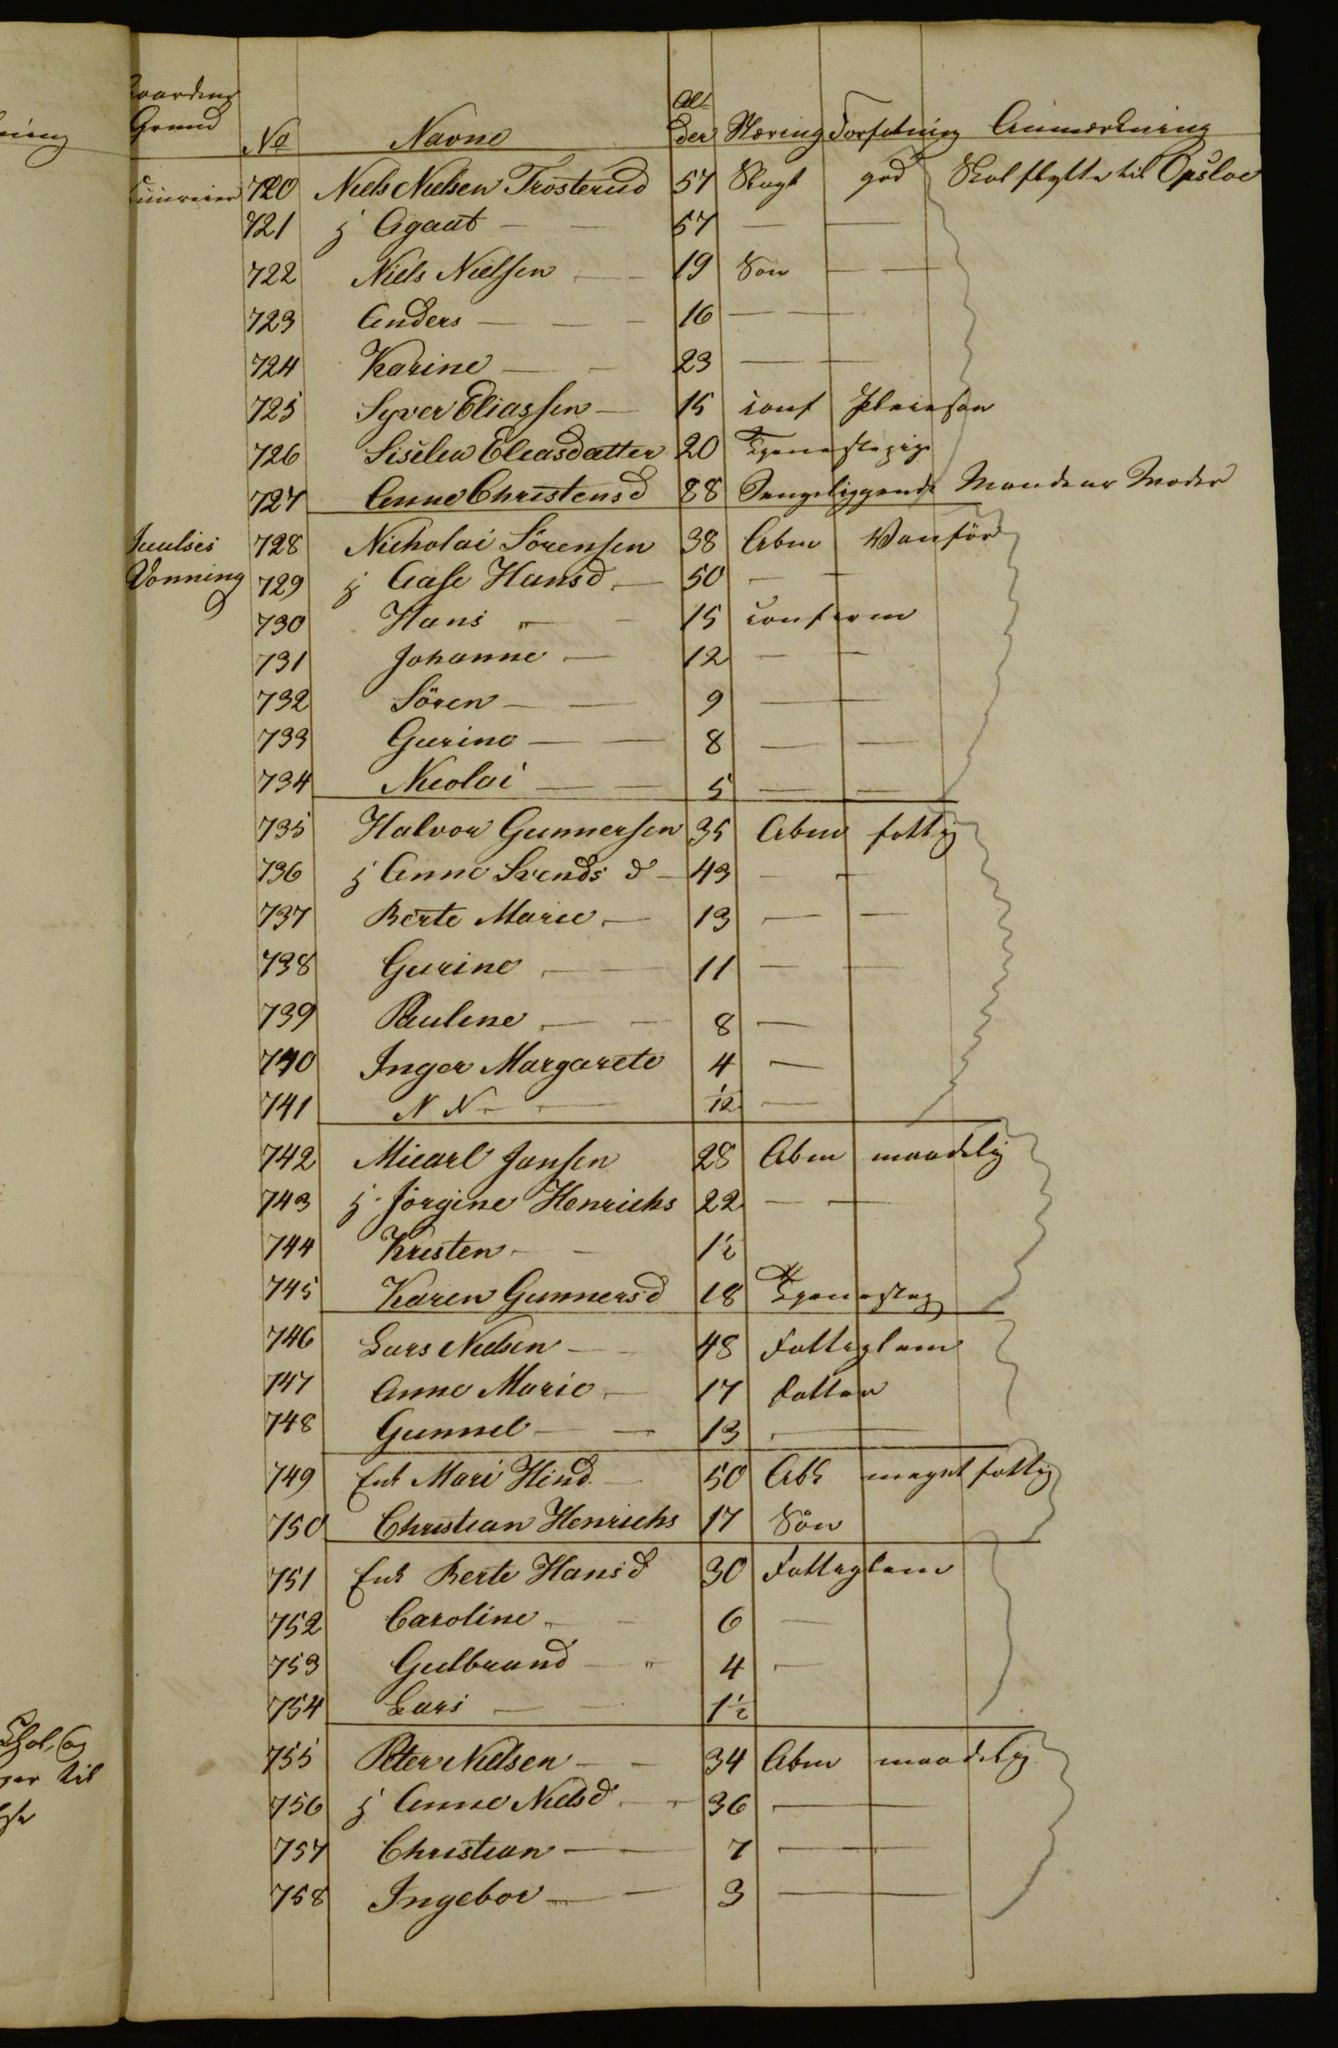 Gaardens Grund No Navne Alder Næring Forfatning Anmærkning
720 Niels Nielsen Trosterud 57 god Skal flytte til Opsloe
721 Agaat — — 57 — —
722 Niels Nielsen — 19 Søn — —
723 Anders — — — 16 — —
724 Karine — — 23 — —
725 Syver Eliassen — 15 conf Pleiesøn
726 Siselia Eleasdatter 20 Tjenestepige
727 Anne Christensd 88 Sengeliggende Mandens Moder
Juulses 728 Nicholai Sörensen 38 Abm Vanför
Vonning 729 Aase Hansd — 50 — —
730 Hans — 15 confirm
731 Johanne — 12 — —
732 Sören — — 9 — —
733 Gurine — — 8 — —
734 Nicolai — — 5 — —
735 Halvor Gunnersen 35 Abm fattig
736 Anne Svends d — 43 — —
737 Berte Marie — 13 — —
738 Gurine — — 11 — —
739 Pauline — — 8 —
740 Inger Margarete 4 —
741 N N — — 1/12 —
742 Micael Jansen 28 Abm maadelig
743 Jörgine Henrichs 22 — —
744 Kristen — — 1½
745 Karen Gunnersd 18 Tjenestep
746 Lars Nielsen — — 48 Fattiglem
747 Anne Marie — 17 Datter
748 Gunnel — — 13 —
749 Enk Mari Hind — 50 meget fattig
750 Christian Henrichs 17 Sön
751 Enk Berte Hansd 30 Fattiglem
752 Caroline — — 6 —
753 Gulbrand — " 4 —
754 Lars — — 1½
755 Peter Nielsen — — 34 Abm maadelig
756 Anne Nielsd — 36 — —
757 Christian — — 7 — —
758 Ingebor — — 3 — —